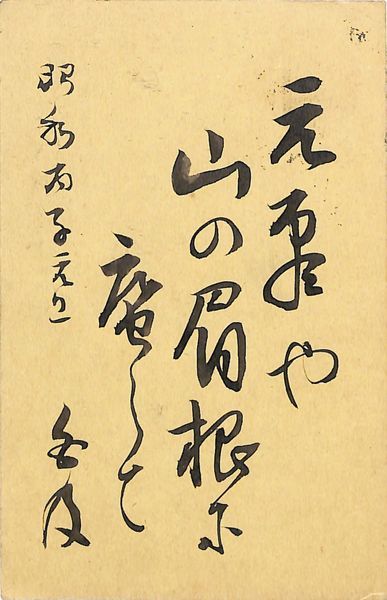 元や
山の眉根に
庵して
昭和丙子元旦